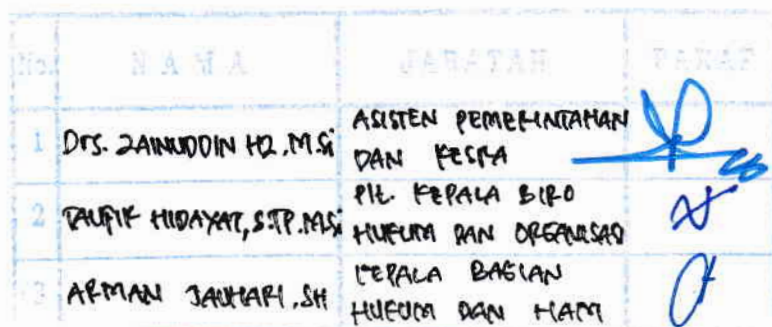 No N A M A JABATAN PARAF
1 Drs. ZAINUDDIN HZ. M.Si ASISTEN PEMERINTAHAN
DAN KESRA
2 TAUFIK HIDAYAT, S.TP. M.Si Plt. KEPALA BIRO
HUKUM DAN ORGANISASI
3 ARMAN JAUHARI, SH KEPALA BAGIAN
HUKUM DAN HAM